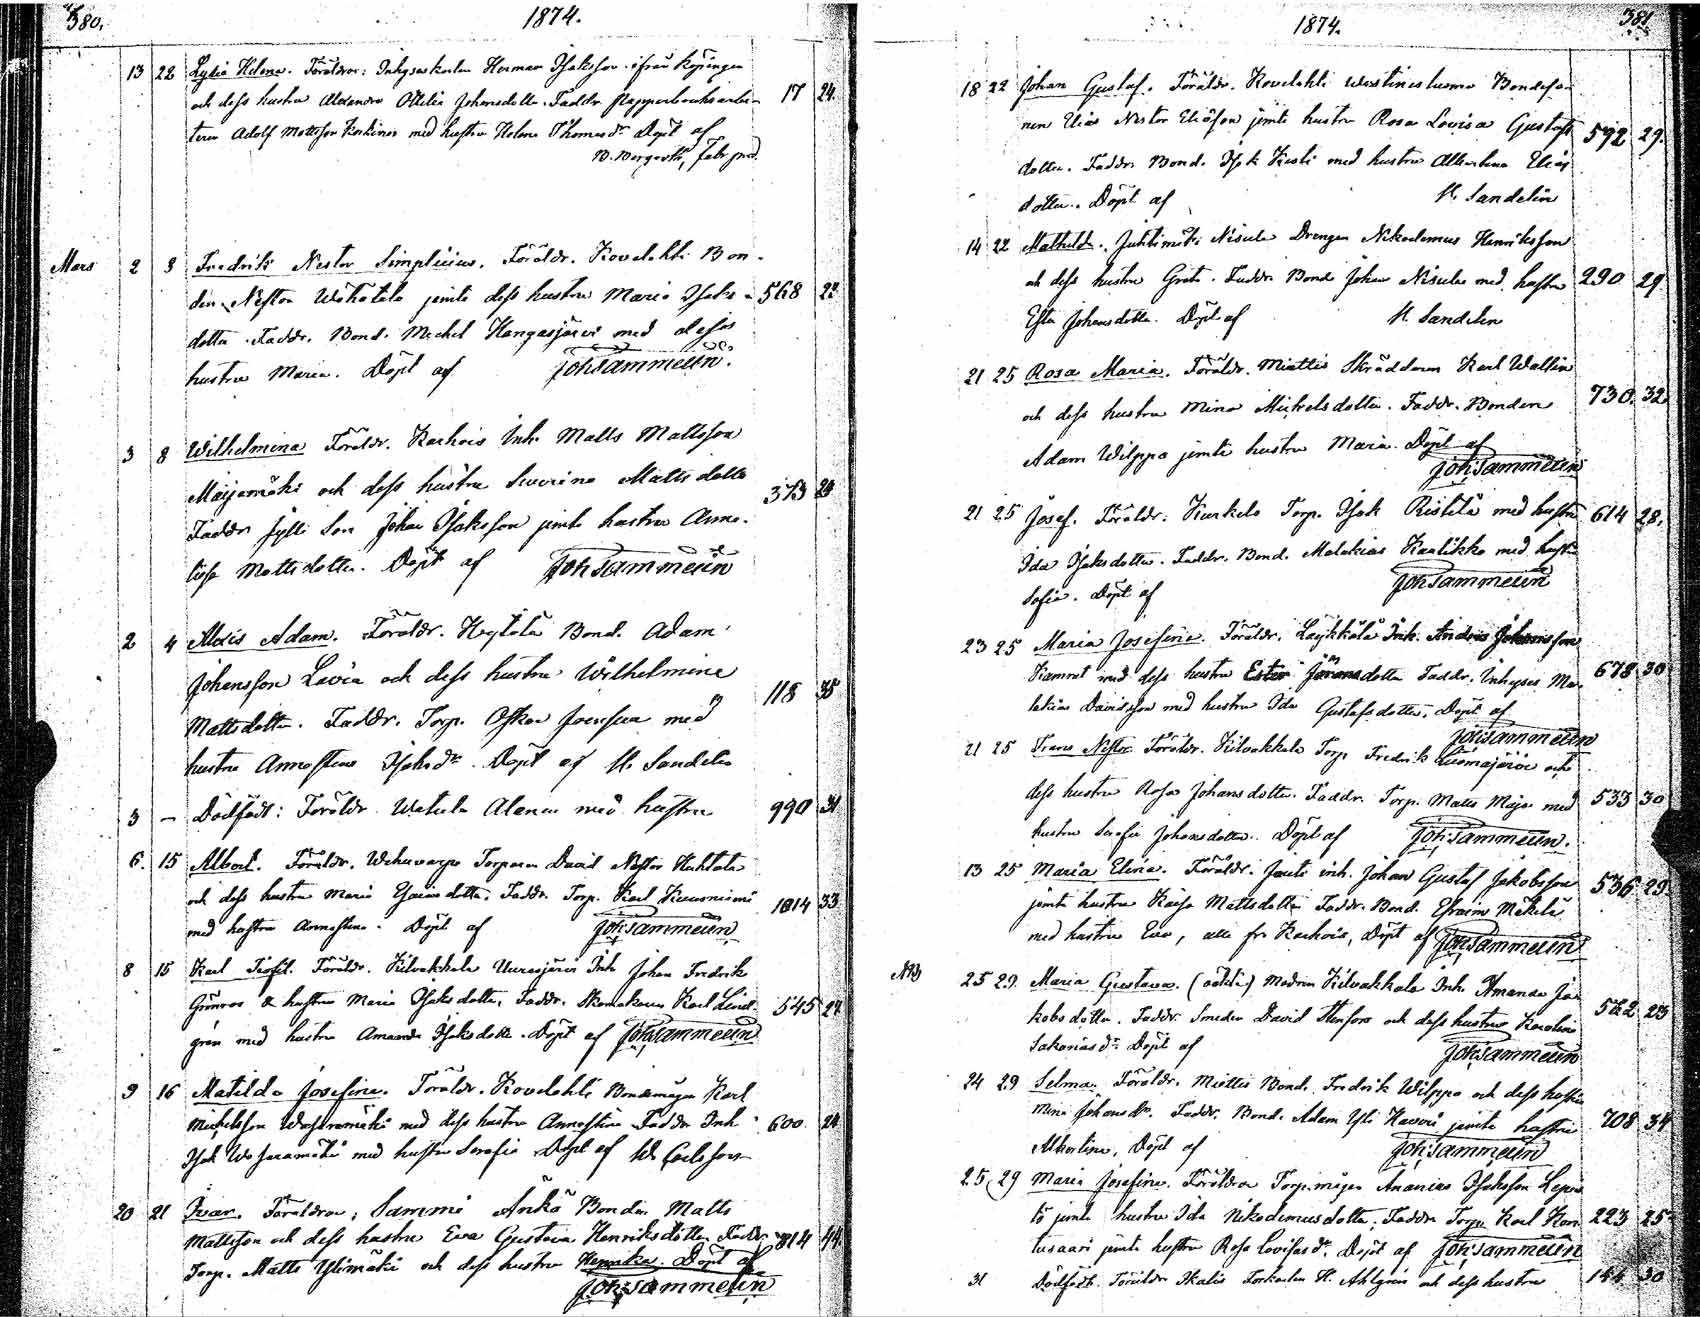 380.
1874.
13 22 Lydia Helena. Föräldrar: Inhyseskarlen Herman Isaksson ifrån Köpingen
och dess hustru Alexandra Ottilia Johansdotter. Faddr.
teren Adolf Mattsson med hustru Helena Thomasdr Döpt af
17 24.
Mars 2 3 Fredrik Nestor Simplicius. Föräldr. Kovelahti Bon-
den Nestor jemte dess hustru Maria Isaks- 568 22
dotter. Faddr. Bond. Michel Kangasjärvi med dess
hustru Maria. Döpt af Joh. Sammelin.
3 8 Wilhelmina Föräldr. Karhois Inh. Matts Mattsson
Maijamäki och dess hustru Severina Mattsdotter 373
Faddr Jylli Son Johan Isaksson jemte hustru Anna-
lisa Mattsdotter. Döpt af Joh Sammelin
2 4 Alexis Adam. Föräldr. Heytölä Bond. Adam
Johansson Lavia och dess hustru Wilhelmina
Mattsdotter. Faddr. Torp. Oskar med 118 35
hustru Annastina Isaksdr. Döpt af K. Sandelin
3 – Dödfödt: Föräldr. Watula Alanen med hustru 990 31
6. 15 Albert. Föräldr. Wehuvarpe Torparen David Nestor Huhtala
och dess hustru Maria Esaiasdotter. Faddr. Torp. Karl Kuusniemi 1014 33
med hustru Annastina. Döpt af Joh. Sammelin
8 15 Karl Teofil. Föräldr. Kilvakkala Uurasjärvi Inh Johan Fredrik
Grönroos & hustru Maria Isaksdotter, Faddr. Skomakaren Karl Lind- 545 24
grén med hustru Amanda Isaksdotter. Döpt af Joh. Sammelin
9 16 Matilda Josefina. Föräldr. Kovelahti Bondemågen Karl
Michelsson med dess hustru Annastina Faddr Inh 600. 24
Isak med hustru Serafia Döpt af
20 21 Ivar. Föräldrar; Sammi Ankö Bonden Matts
Mattsson och dess hustru Eva Gustava Henriksdotter Faddr. 814 44.
Torp. Matts Ylimäki och dess hustru Henrika. Döpt af
Joh: Sammelin
1874.
381
18 22 Johan Gustaf. Föräldr. Kovelahti Bondeso-
nen Elias Nestor Eliasson jemte hustru Rosa Lovisa Gustafs 592 29.
dotter. Faddr. Bond. Isak Kesti med hustru Albertina Elias
dotter. Döpt af K. Sandelin
14 22 Mathilda. Juhtimäki Nisula Drengen Nikodemus Henriksson
och dess hustru Greta. Faddr Bond Johan Nisula med hustru 290 29
Ester Johansdotter. Döpt af K. Sandelin
21 25 Rosa Maria. Föräldr. Miettis Skräddaren Karl Wallin
och dess hustru Mina Michelsdotter. Faddr. Bonden 730. 32.
Adam Wilppa jemte hustru Maria. Döpt af
Joh: Sammelin
21 25 Josef. Föräldr. Kurkela Torp. Isak Ristilä med hustru 614 28.
Ida Isaksdotter. Faddr. Bond. Malakias Kaalikko med hustru
Sofia. Döpt af Joh: Sammelin
23 25 Maria Josefina. Föräldr. Läykkälä Inh. Andreas Johansson
Kiamnt med dess hustru Ester Göransdotter Faddr. Inhyses Ma- 678 30
lakias Davidsson med hustru Ida Gustafsdotter. Döpt af
Joh: Sammelin
21 25 Frans Nestor Föräldr. Kilvakkala Torp Fredrik Luomajärvi och
dess hustru Rosa Johansdotter. Faddr. Torp. Matts Maja med 533 30
hustru Serafia Johansdotter. Döpt af Joh: Sammelin.
13 25 Maria Elina. Föräldr. inh. Johan Gustaf Jakobsson 536 29.
jemte hustru Kaisa Mattsdotter Faddr. Bond. Efraim Mäkelä
med hustru Eva, alla fr. Karhois, Döpt af Joh: Sammelin
25 29. Maria Gustava. (oäkta) Modren Kilvakkala Inh. Amanda Ja-
kobsdotter. Faddr. Smeden David Stenfors och dess hustru Karolina 562 23
Sakariasdr. Döpt af Joh: Sammelin
24 29 Selma. Föräldr. Miettis Bond. Fredrik Wilppa och dess hustru
Mina Johansdr. Faddr. Bond. Adam Yli jemte hustru 708 34
Albertina, Döpt af Joh: Sammelin
25 29 Maria Josefina. Föräldrar Torp.mågen Ananias Isaksson Lepis
tö jemte hustru Ida Nikodemusdotter. Faddr Torp. Karl Kon 223 25
tusaari jemte hustru Rosa Lovisadr. Döpt af Joh: Sammelin
31 Dödfödt. Föräldr. Ikalis Torkarlen K. Ahlgren och dess hustru 144 30